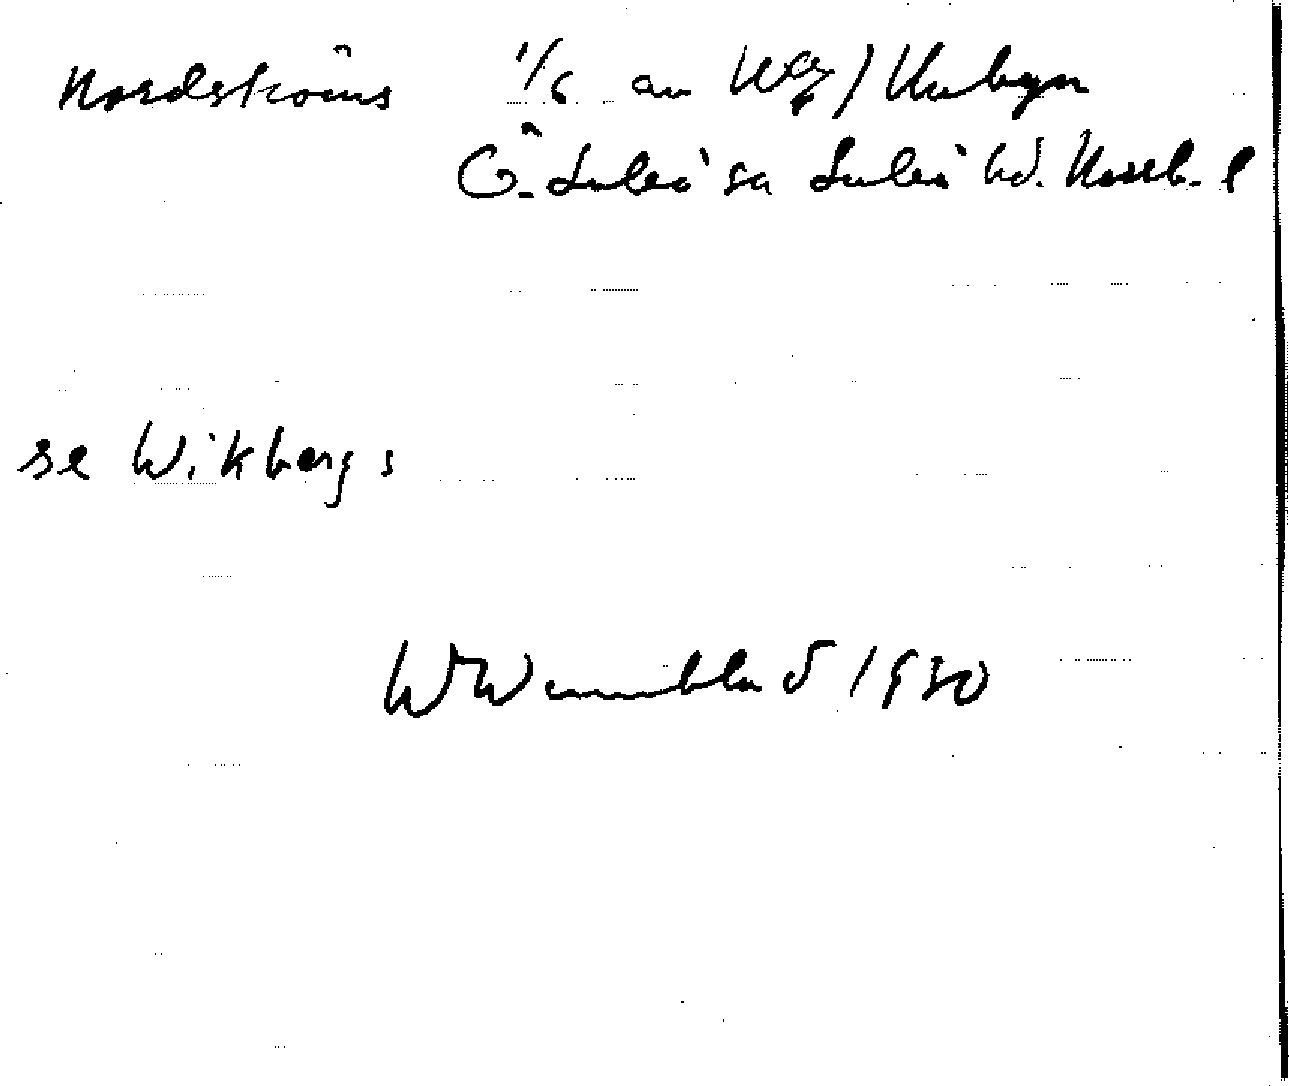 Nordströms 1/6 av Nr 9 / Kubyn
Ö. Luleå sn Luleå hd. Norrb. l
se Wikbergs
W Wennblad 1930